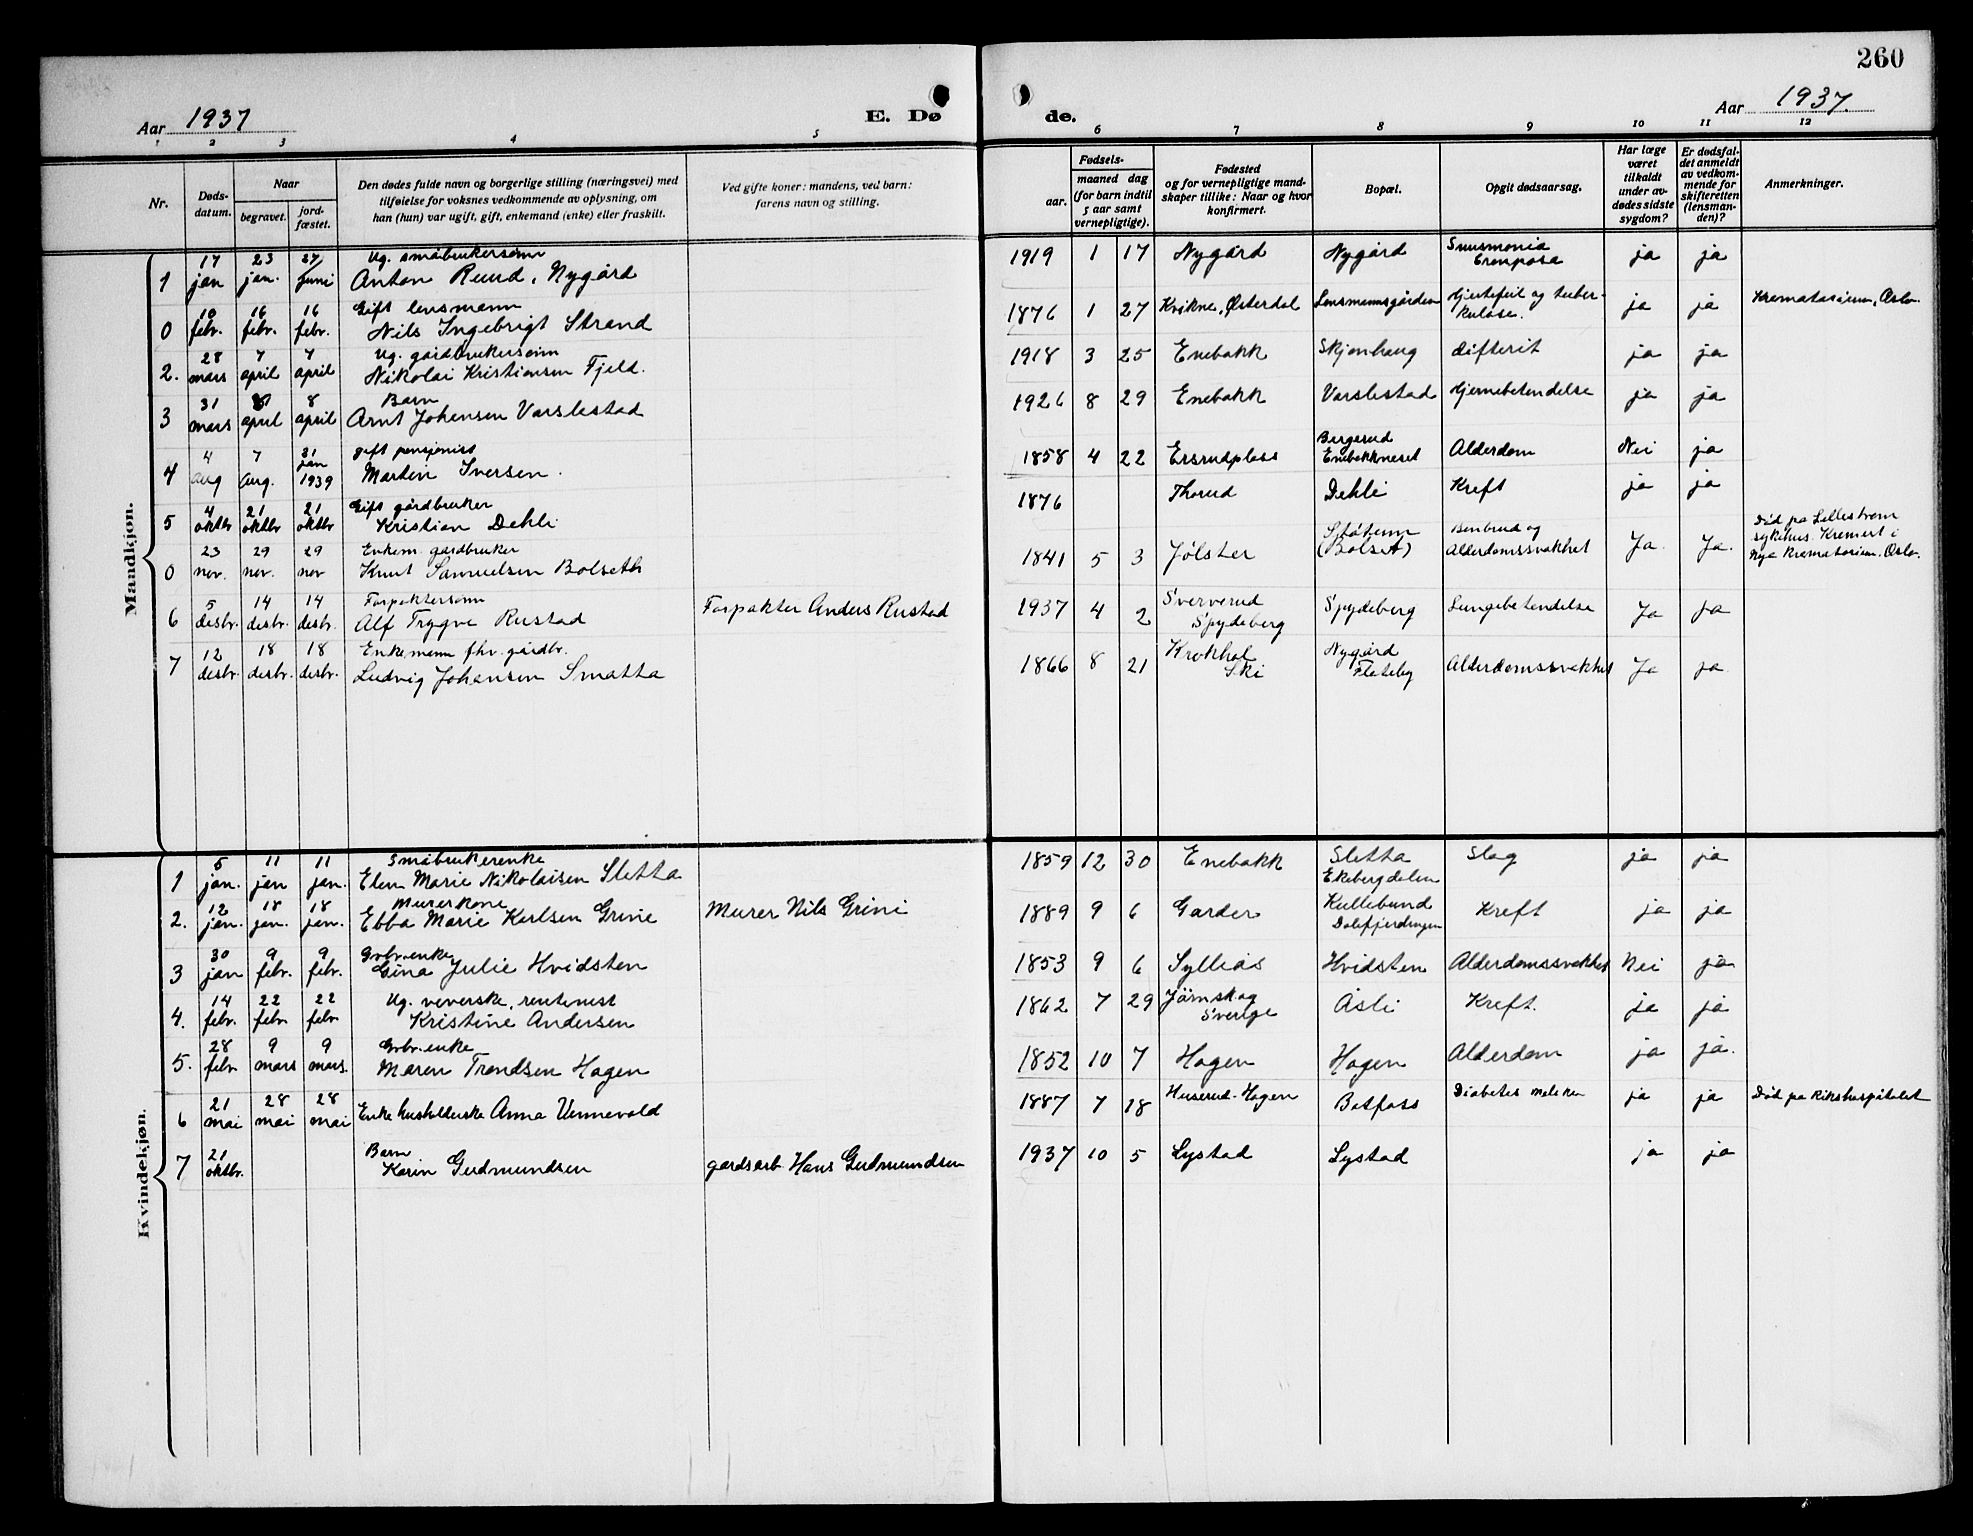 260
Aar 1937
E. Dø
de.
Aar 1937.
1 2 3 4 5 6 7 8 9 10 11 12
Nr.
Døds-
datum.
Naar
begravet.
jord-
fæstet.
Den dødes fulde navn og borgerlige stilling (næringsvei) med
tilføielse for voksnes vedkommende av oplysning, om
han (hun) var ugift, gift, enkemand (enke) eller fraskilt.
Ved gifte koner: mandens, ved barn:
farens navn og stilling.
Fødsels-
aar.
maaned dag
(for barn indtil
5 aar samt
vernepligtige).
Fødested
og for vernepligtige mand-
skaper tillike: Naar og hvor
konfirmert.
Bopæl.
Opgit dødsaarsag.
Har læge
været
tilkaldt
under av-
dødes sidste
sygdom?
Er dødsfal-
det anmeldt
av vedkom-
mende for
skifteretten
(lensman-
den)?
Anmerkninger.
Mandkjøn.
17 23 27 Ug. småbrukersønn
1 jan jan. juni Anton Ruud, Nygård 1919 1 17 Nygård Nygård ja ja
10 16 16 Gift lensmann
0 febr. febr. febr. Nils Ingebrigt Strand 1876 1 27 Kvikne, Østerdal Lensmannsgården Hjertefeil og tuber-
kulose. ja ja Krematorium, Oslo.
28 7 7 Ug. gårdbrukersønn
2. mars april april Nikolai Kristiansen Fjeld. 1918 3 25 Enebakk Skjønhaug difterit ja ja
31 8 8 Barn
3 mars april april Arnt Johansen Varslestad 1926 8 29 Enebakk Varslestad Hjernebetendelse ja ja
4 7 31 gift pensjonist
4 aug aug. jan 1939 Martin Iversen. 1858 4 22 Ersrudplass Bergerud
Enebakkneset Alderdom Nei ja
4 21 21 Gift gårdbruker
5 oktbr oktbr oktbr Kristian Dehli 1876 Thorud Dehli Kreft ja ja
23 29 29 Enkem. gårdbruker
0 nov. nov. nov Knut Samuelsen Bolseth 1841 5 3 Jølster
(Bolset) Benbrud og
Alderdomssvakhet Ja. Ja. Død på Lillestrøm
sykehus. Kremert i
Nye krematorium. Oslo.
5 14 14 Forpaktersønn
6 desbr. desbr. desbr. Alf Trygve Rustad Forpakter Anders Rustad 1937 4 2 Sververud
Spydeberg Spydeberg Lungebetendelse Ja ja
12 18 18 Enkemann fhv. gårdbr.
7 desbr. desbr. desbr. Ludvig Johansen Smatta 1866 8 21 Krokhol
Ski Nygård
Flateby Alderdomssvakhet Ja ja
Kvindekjøn.
5 11 11 Småbrukerenke
1 jan. jan jan. Elen Marie Nikolaisen Sletta 1859 12 30 Enebakk Sletta
Ekebergdalen Slag ja ja
12 18 18 Murerkone
2. jan. jan. jan. Ebba Marie Karlsen Grini Murer Nils Grini 1889 9 6 Garder Kullebund
Dalefjerdingen Kreft ja ja
30 9 9 Grbr.enke
3 jan febr. febr. Gina Julie Hvidsten 1853 9 6 Sylliås Hvidsten Alderdomssvakhet Nei ja
14 22 22 Ug. veverske, rentenist
4. febr. febr febr Kristine Andersen 1862 7 29 Järnskog
Sverige Åsli Kreft. ja ja
28 9 9 Grbr.enke
5. febr mars mars. Maren Trondsen Hagen 1852 10 7 Hagen Hagen Alderdom ja ja.
21 28 28
6 mai mai mai Enke husholderske Anna Vennevold 1887 7 18 Huserud-Hagen Botfoss ja ja Død på Rikshospitalet
21 Barn
7 oktbr. Karin Gudmundsen gårdsarb. Hans Gudmundsen 1937 10 5 Lystad Lystad ja ja